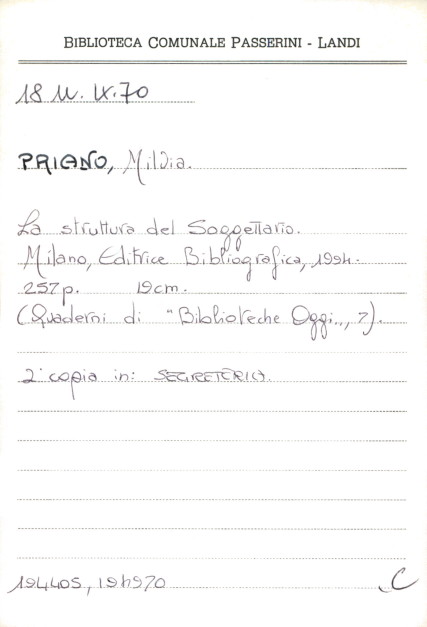 BIBLIOTECA COMUNALE PASSERINI - LANDI
18 M. IX. 70
PRIANO, Mildia.
La struttura del Soggettario.
Milano, Editrice Bibliografica, 1994.
257 p. 19 cm.
(Quaderni di "Biblioteche Oggi", 7).
2ª copia in: SEGRETERIA.
194405, 194970 C